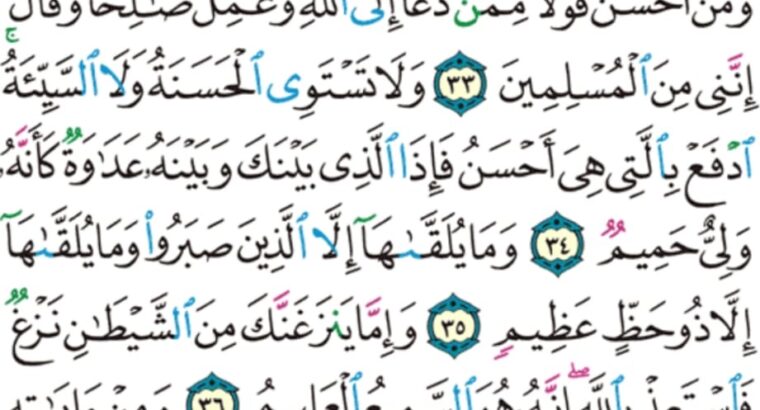 ومن أحسن قولا ممن دعا إلى الله وعمل صالحا وقال
إِنَّنِى مِنَ ٱلْمُسْلِمِينَ ٣٣ وَلَا تَسْتَوِى ٱلْحَسَنَةُ وَلَا ٱلسَّيِّئَةُ ۚ
ٱدْفَعْ بِٱلَّتِى هِىَ أَحْسَنُ فَإِذَا ٱلَّذِى بَيْنَكَ وَبَيْنَهُۥ عَدَٰوَةٌ كَأَنَّهُۥ
وَلِىٌّ حَمِيمٌ ٣٤ وَمَا يُلَقَّىٰهَآ إِلَّا ٱلَّذِينَ صَبَرُوا۟ وَمَا يُلَقَّىٰهَآ
إِلَّا ذُو حَظٍّ عَظِيمٍ ٣٥ وَإِمَّا يَنزَغَنَّكَ مِنَ ٱلشَّيْطَٰنِ نَزْغٌ
فَٱسْتَعِذْ بِٱللَّهِ ۖ إِنَّهُۥ هُوَ ٱلسَّمِيعُ ٱلْعَلِيمُ ٣٦ وَمِنْ ءَايَٰتِهِ